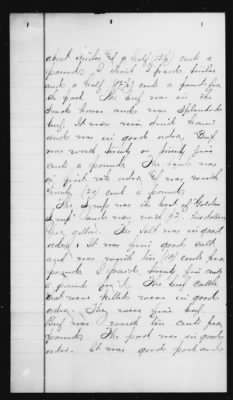 about quites & a half (12½) cents a
pound. I think I paid twelve
and a half (12½) cents a pound for
the pork. The beef was in the
smoke house and was splendid
beef. It was nice dried beef
and was in good order. Beef
was worth twenty or twenty five
cents a pound. The lard was
in first rate order & was worth
twenty (20) cents a pound.
The Syrup was the best of "Golden
Syrup" and was worth ($2.) two dollars
per gallon. The salt was in good
order. It was fine good salt
and was worth ten (10) cents per
pound. I paid twenty five cents
a pound for it. The beef cattle
that were killed were in good
order. They were fine beef.
Beef was worth ten cents per
pound. The pork was in good
order. It was good pork and